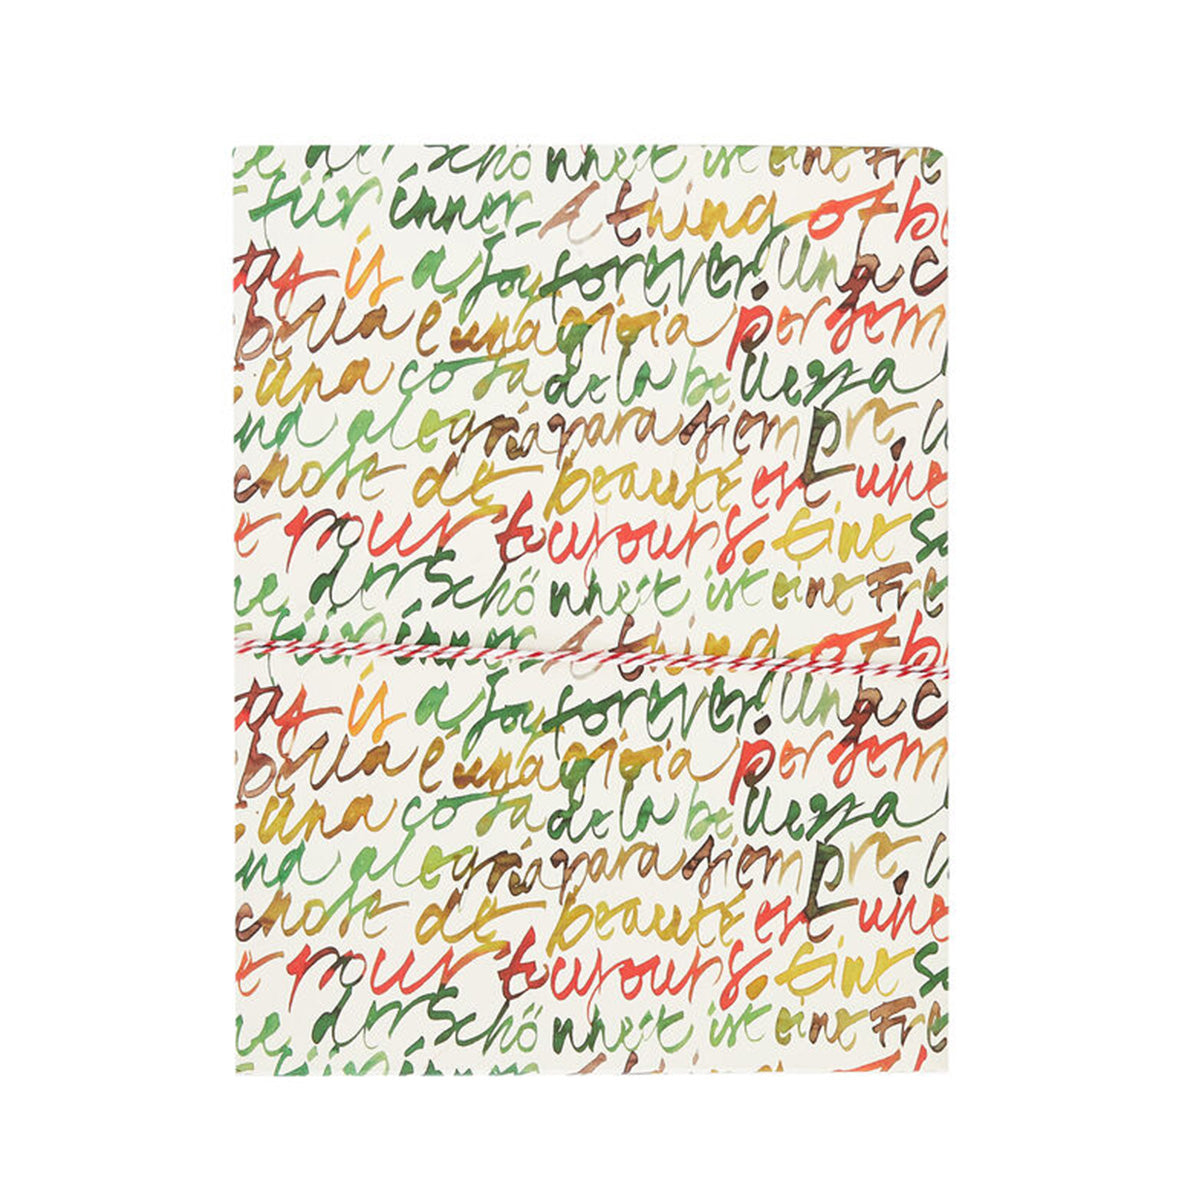 e der Schönheit ist eine Fre
für immer. A thing of be
ty is a joy forever. Una c
bella é una gioia per sem
una cosa de la belleza
una alegría para siempre. U
chose de beauté est une
e pour toujours. Eine Sc
ne der Schönheit ist eine Fre
für immer. A thing of be
ty is a joy forever. Una c
bella é una gioia per sem
una cosa de la belleza
una alegría para siempre. U
chose de beauté est une
e pour toujours. Eine Sc
ne der Schönheit ist eine Fre
für immer